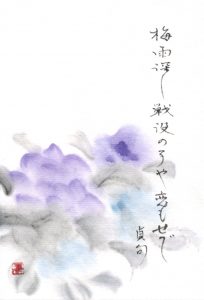 梅雨深し戦没の子や恋もせで
貞句